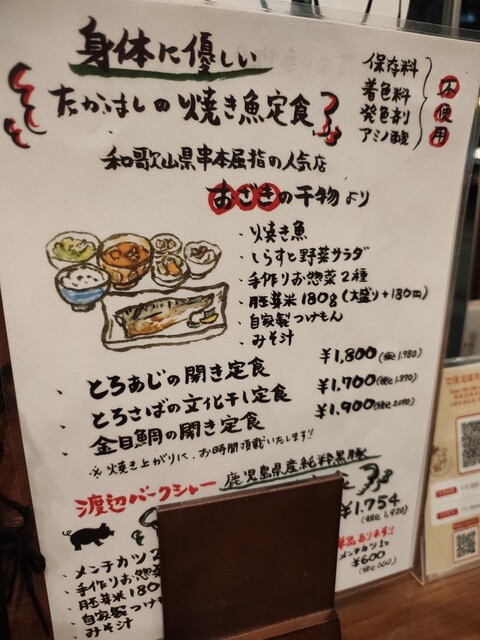 身体に優しい
たかはしの焼き魚定食
保存料
着色料
発色剤
アミノ酸
不使用
和歌山県串本屈指の人気店
おざきの干物より
・焼き魚
・しらすと野菜サラダ
・手作りお惣菜2種
・胚芽米180g(大盛り+130円)
・自家製つけもん
・みそ汁
・とろあじの開き定食 ¥1,800(税込1,980)
・とろさばの文化干し定食 ¥1,700(税込1,870)
・金目鯛の開き定食 ¥1,900(税込2,090)
※焼き上がりに、お時間頂戴いたします!!
鹿児島県産純粋黒豚
渡辺バークシャー
¥1,754
(税込1,930)
・メンチカツ2
・手作りお惣菜
・胚芽米180
・自家製つけも
・みそ汁
単品あります!!
メンチカツ1ケ
¥600
(税込660)